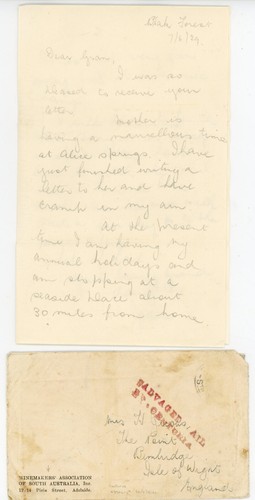 Dear Gran,
I was so
pleased to receive your
letter
Mother is
having a marvellous time
at Alice Springs. I have
just finished writing a
letter to her and have
cramp in my arm
At the present
time I am having my
annual holidays and
am stopping at a
seaside place about
30 miles from home
SALVAGED MAIL
Mrs H
The Point
Bembridge
Isle of Wight
England
WINEMAKERS' ASSOCIATION
OF SOUTH AUSTRALIA, Inc
Pirie Street, Adelaide